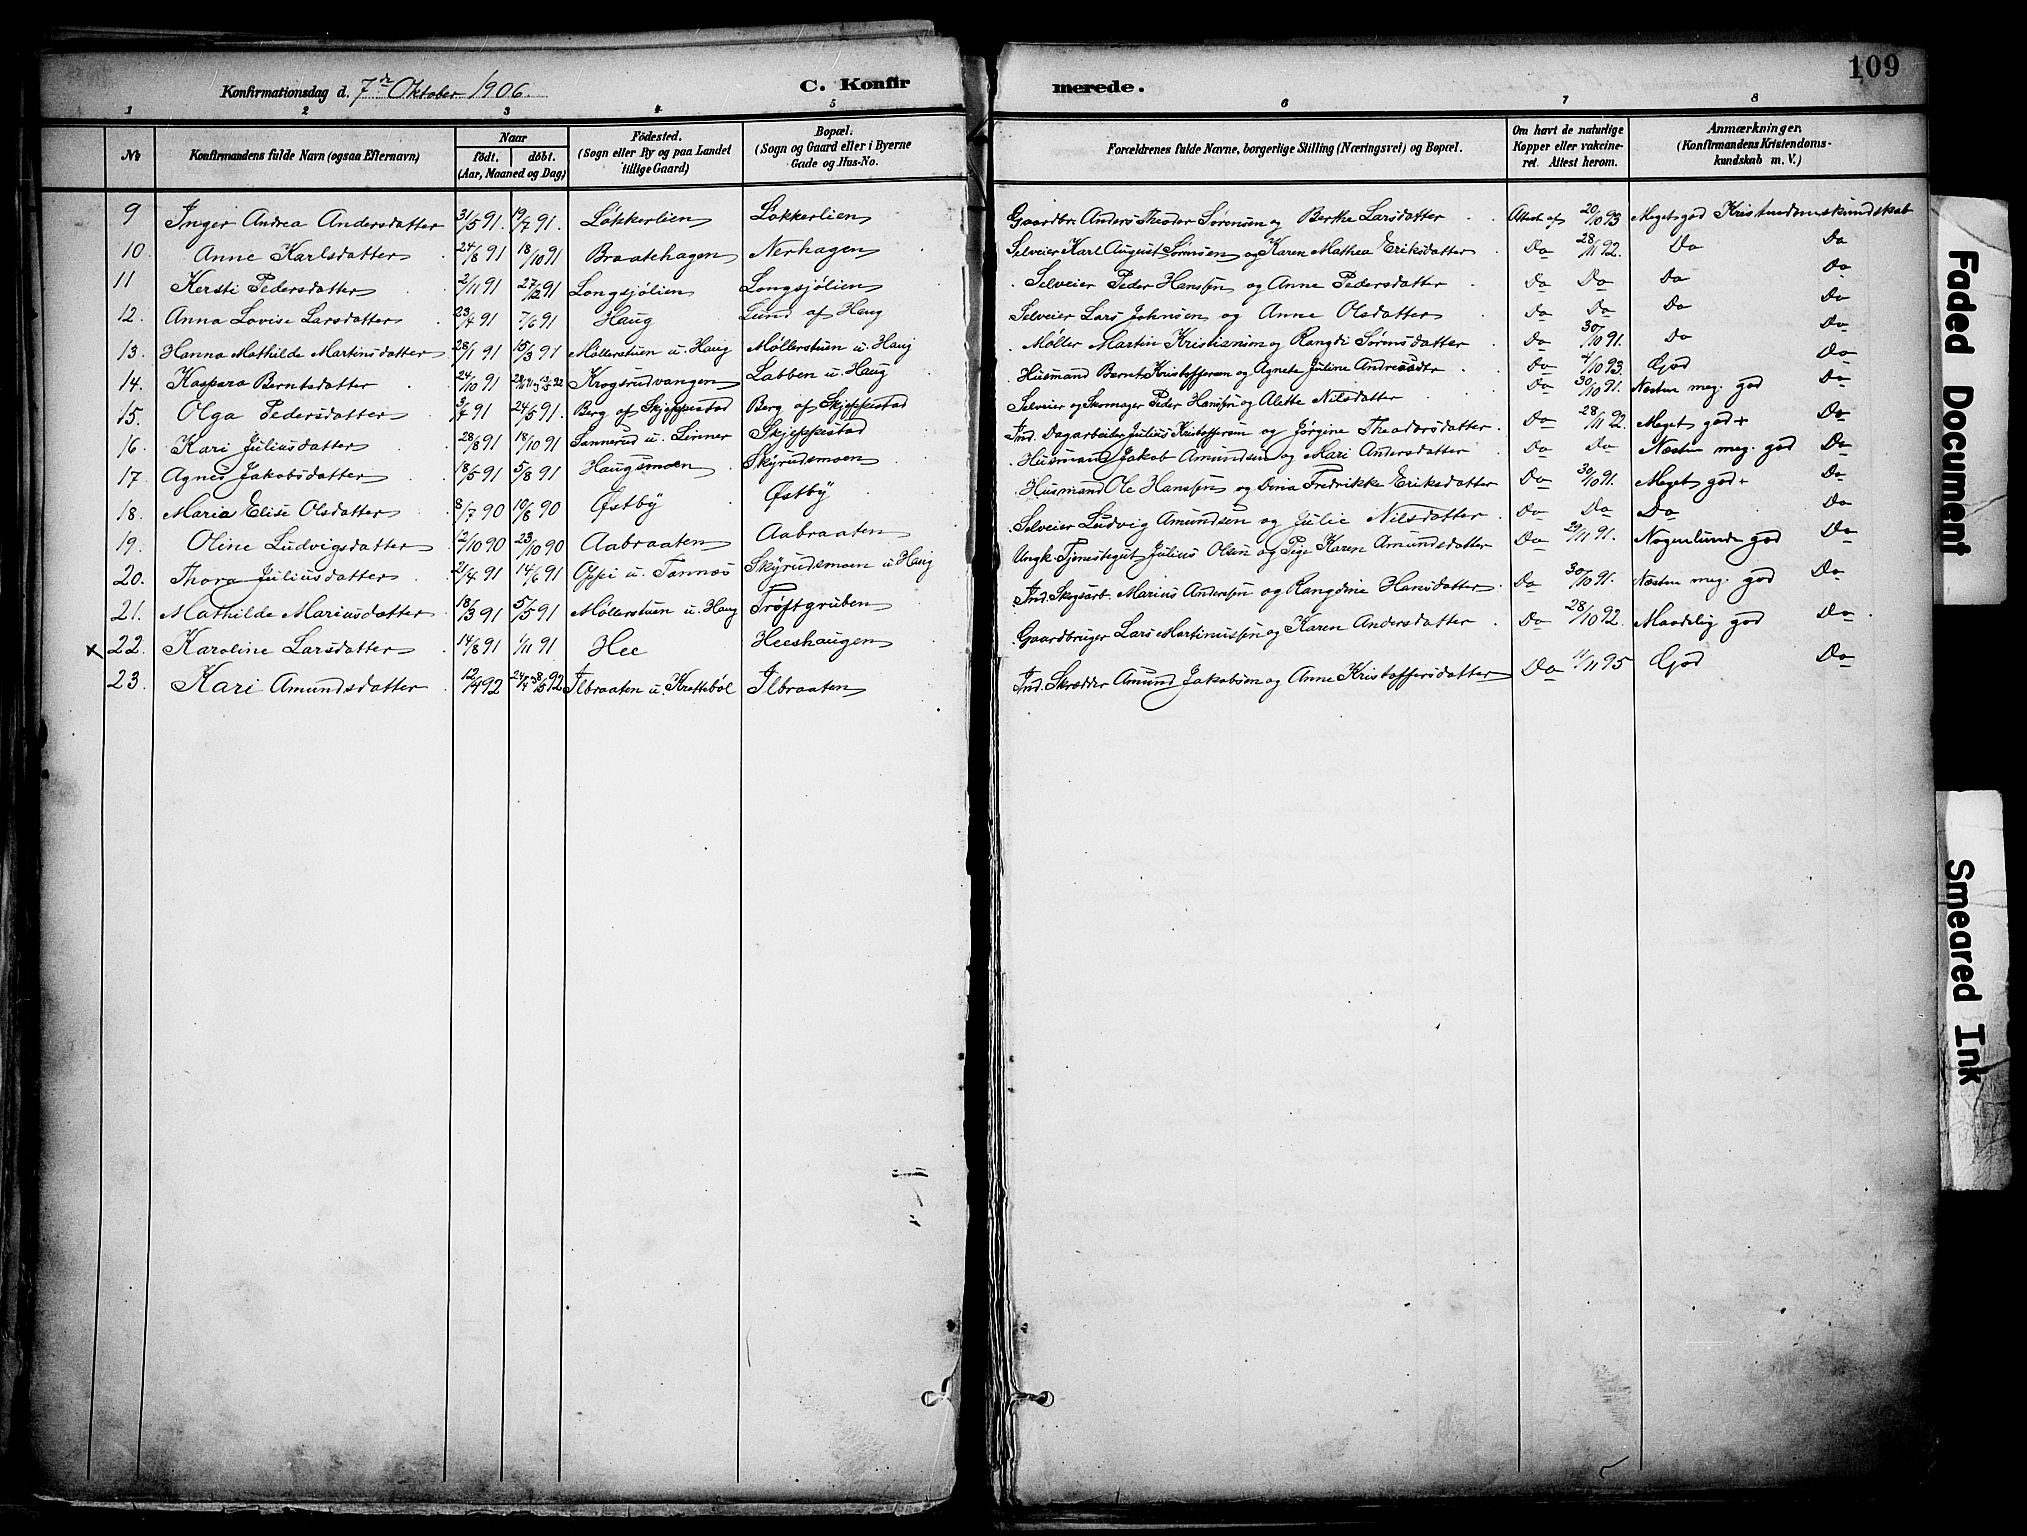 109
Konfirmationsdag d. 7de Oktober 1906. C. Konfir merede.
1 2 3 4 5 6 7 8
№ Konfirmandens fulde Navn (ogsaa Efternavn) Naar födt. döbt. (Aar, Maaned og Dag) Födested. (Sogn eller By og paa Landet tillige Gaard) Bopæl. (Sogn og Gaard eller i Byerne Gade og Hus-No. Forældrenes fulde Navne, borgerlige Stilling (Næringsvei) og Bopæl. Om havt de naturlige Kopper eller vakcineret. Attest herom. Anmærkninger. (Konfirmandens Kristendomskundskab m. V.)
9 Inger Andrea Andersdatter 31/5 91 19/7 91. Løkkerlien Løkkerlien Gaardbr. Anders Theodor Sørensen og Berthe Larsdatter Attest af 20/10 93 Meget god Kristendomskundskab
10. Anne Karlsdatter 24/8 91 18/10 91 Braatehagen Nerhagen Selveier Karl August Sørensen og Karen Mathea Eriksdatter Do 28/11 92. Do Do
11 Kersti Pedersdatter 2/11 91 27/12 91 Longsjølien Longsjølien Selveier Peder Hanssen og Anne Pedersdatter Do Do Do Do
12. Anna Lovise Larsdatter 23/4 91 7/6 91 Haug Lund af Haug Selveier Lars Johnsen og Anne Olsdatter Do Do Do Do
13. Hanna Mathilde Martinsdatter 28/1 91 15/3 91 Møllerstuen u. Haug Møllerstuen u. Haug Møller Martin Kristiansen og Rangdi Sørensdatter Do 30/10 91. Do Do
14. Kaspara Berntsdatter 24/10 91 Krogsrudvangen Labben u. Haug Husmand Bernt Kristoffersen og Agnete Juline Andreasdtr Do 4/10 93. God Do
15. Olga Pedersdatter 3/4 91 24/5 91. Berg af Skjeppestad Berg af Skjeppestad Selveier og Skomager Peder Hanssen og Alette Nilsdatter Do 30/10 91. Næsten meg. god Do
16. Kari Juliusdatter 28/8 91 18/10 91 Sannerud u. Linner Skjeppestad Ind. Dagarbeider Julius Kristoffersen og Jørgine Theodorsdatter. Do 28/11 92. Meget god Do
17. Agnes Jakobsdatter 18/5 91 5/8 91 Haugsmoen Skyrudsmoen Husmand Jakob Amundsen og Mari Andersdatter Do Do Næsten meg. god Do
18. Maria Elise Olsdatter 8/7 90 10/8 90 Østby Østby Husmand Ole Hanssen og Dina Fredrikke Eriksdatter Do 30/10 91. Meget god Do
19. Oline Ludvigsdatter 2/10 90 23/10 90 Aabraaten Aabraaten Selveier Ludvig Amundsen og Julie Nilsdatter Do Do Do Do
20. Thora Juliusdatter 21/4 91 14/6 91 Oppi u. Tannæs Skyrudsmoen u. Haug Ungk. Tjenestegut Julius Olsen og Pige Karen Amundsdatter Do 29/11 91. Nogenlunde god Do
21. Mathilde Mariusdatter 18/3 91 5/5 91 Møllerstuen u. Haug Trøftgruben Ind. Skogsarb. Marius Andersen og Rangdine Hansdatter Do 30/10 91. Næsten meg. god Do
x 22. Karoline Larsdatter 14/8 91 1/11 91 Hee Heeshaugen Gaardbruger Lars Martinussen og Karen Andersdatter Do 28/10 92. Maadelig god Do
23. Kari Amundsdatter 12/4 92 Ilbraaten u. Krettebøl Ilbraaten Ind. Skrædder Amund Jakobsen og Anne Kristoffersdatter Do 11/11 95 God Do
Faded Document
Smeared Ink